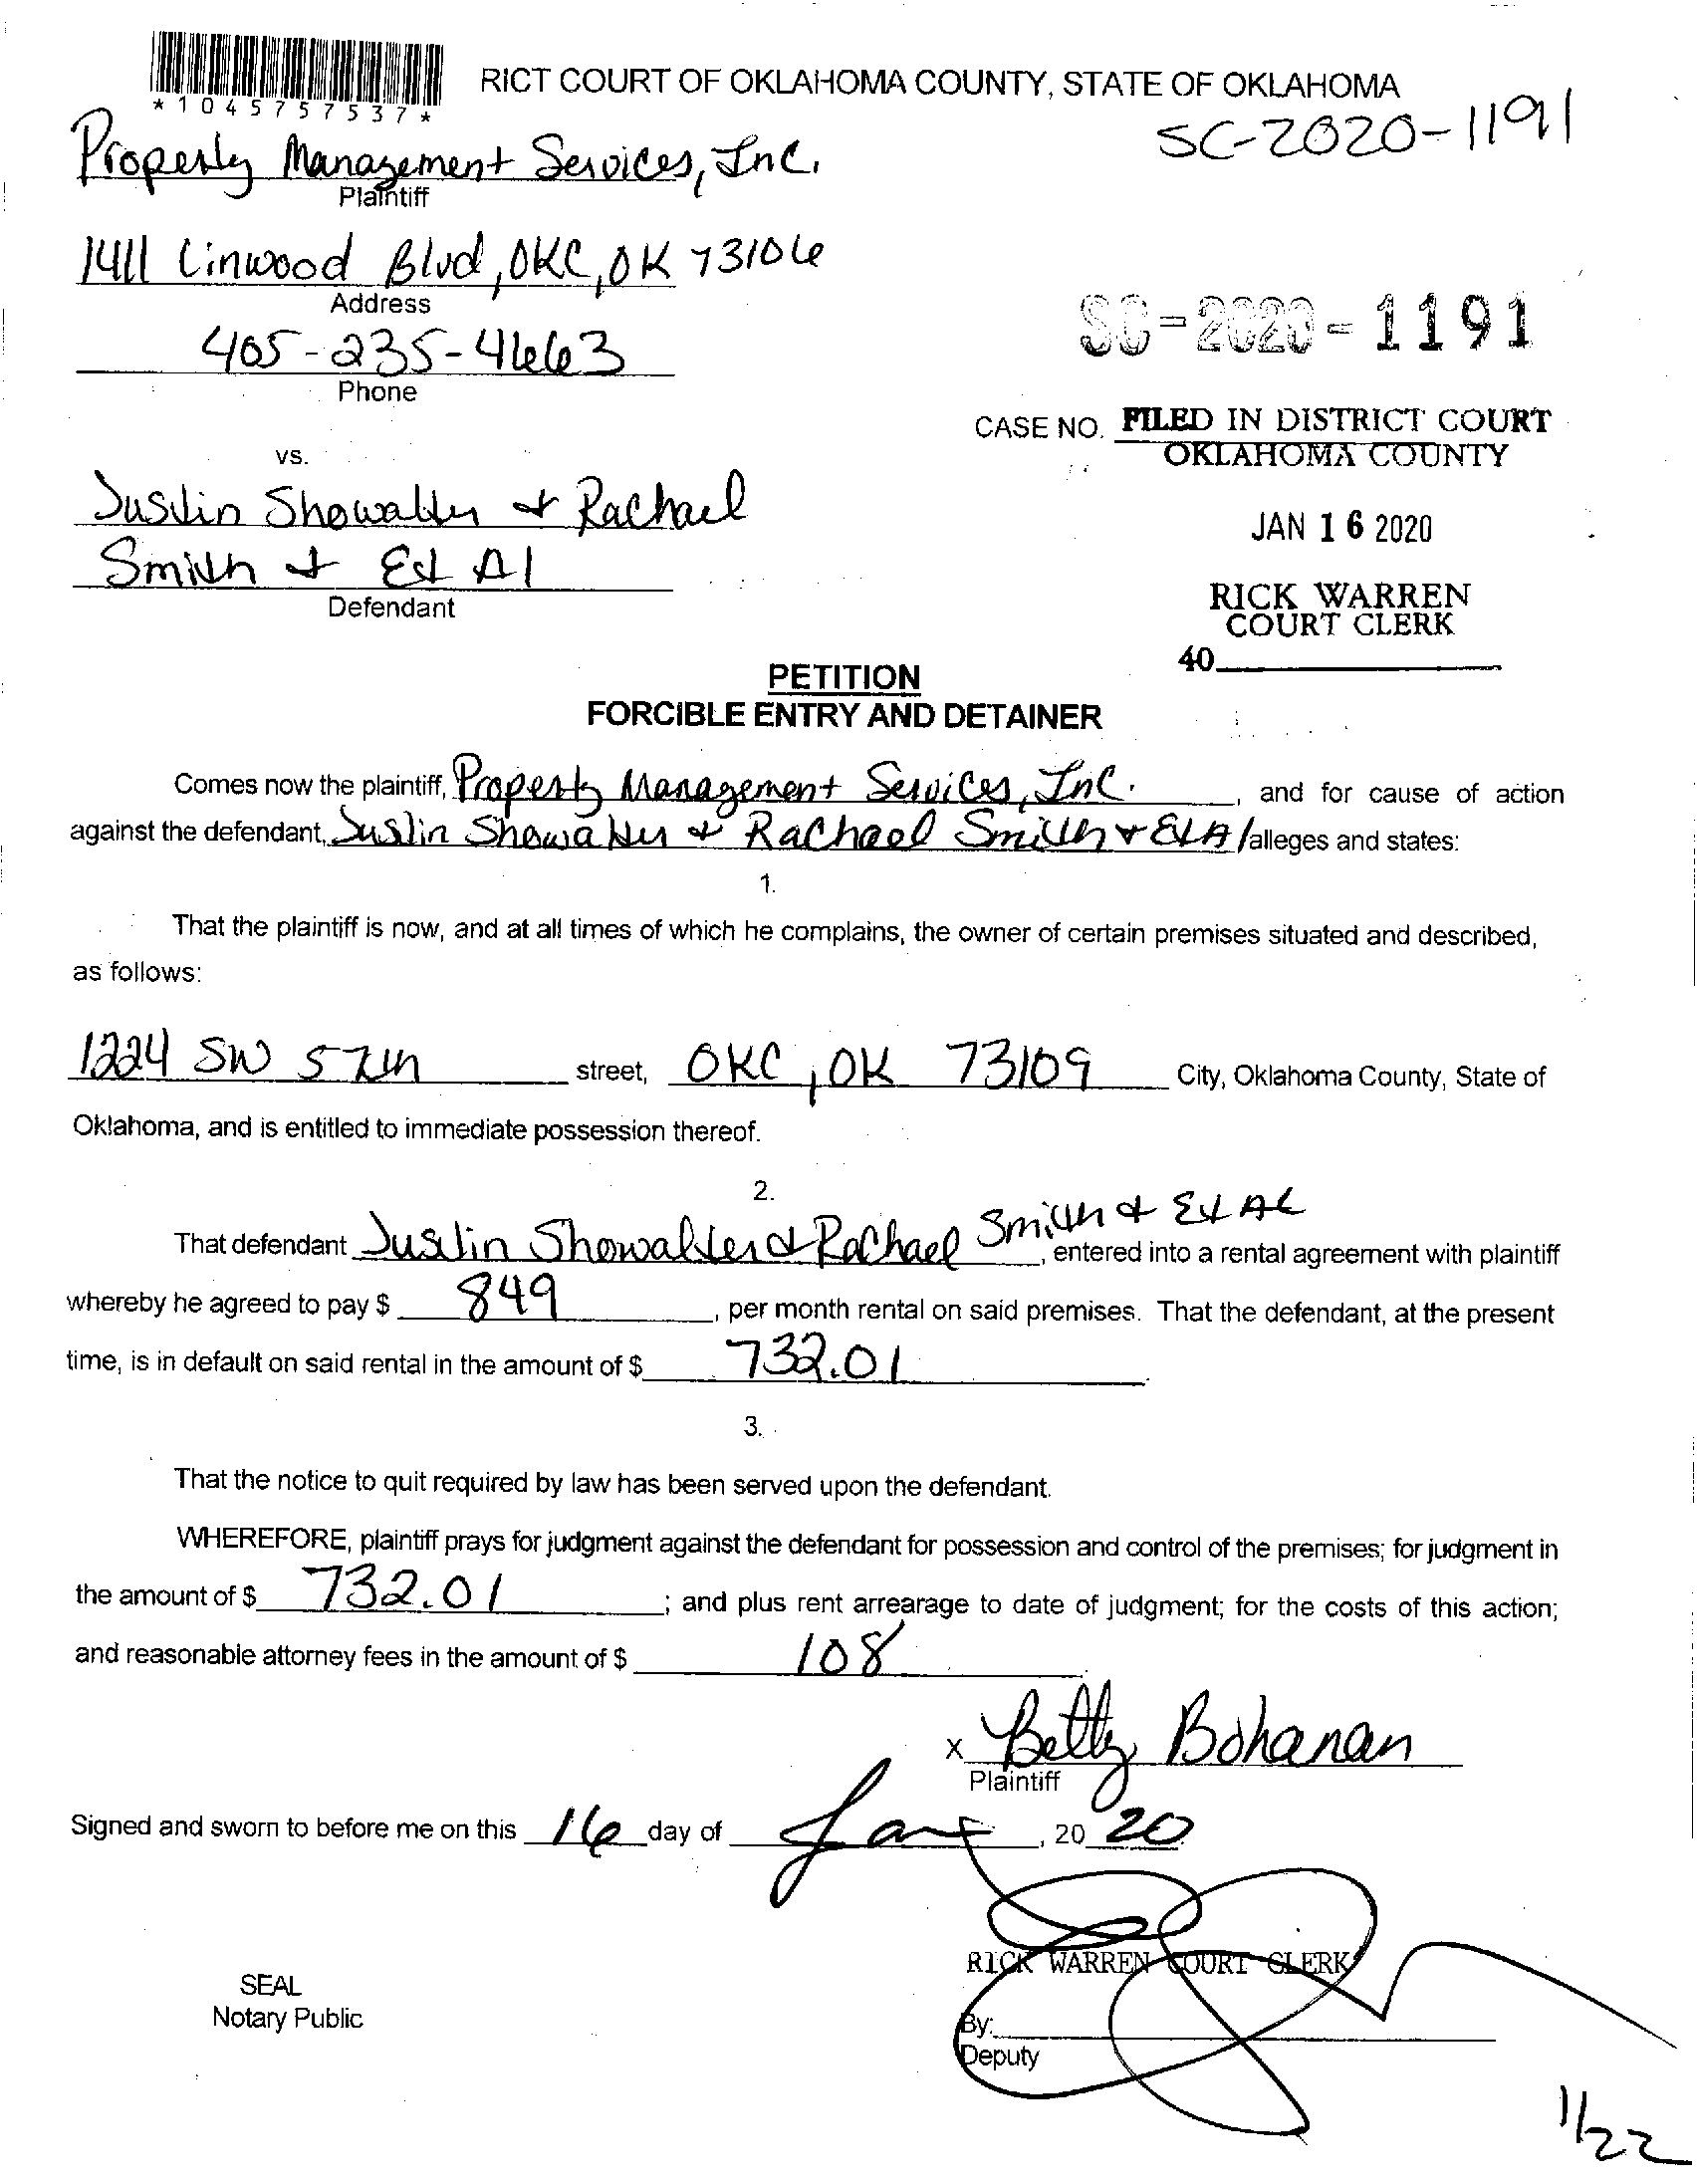 *1045757537*
RICT COURT OF OKLAHOMA COUNTY, STATE OF OKLAHOMA
SC-2020-1191
Property Management Services, Inc.
Plaintiff
1411 Linwood Blvd, OKC, OK 73106
Address
405-235-4663
Phone
SC-2020-1191
CASE NO. FILED IN DISTRICT COURT
OKLAHOMA COUNTY
vs.
Justin Showalter & Rachael
Smith & Et Al
Defendant
JAN 16 2020
RICK WARREN
COURT CLERK
40
PETITION
FORCIBLE ENTRY AND DETAINER
Comes now the plaintiff, Property Management Services, Inc. , and for cause of action
against the defendant, Justin Showalter & Rachael Smith & Et Al alleges and states:
1.
That the plaintiff is now, and at all times of which he complains, the owner of certain premises situated and described,
as follows:
1224 SW 57th street, OKC, OK 73109 City, Oklahoma County, State of
Oklahoma, and is entitled to immediate possession thereof.
2.
That defendant Justin Showalter & Rachael Smith & Et Al, entered into a rental agreement with plaintiff
whereby he agreed to pay $ 849, per month rental on said premises. That the defendant, at the present
time, is in default on said rental in the amount of $ 732.01.
3.
That the notice to quit required by law has been served upon the defendant.
WHEREFORE, plaintiff prays for judgment against the defendant for possession and control of the premises; for judgment in
the amount of $ 732.01; and plus rent arrearage to date of judgment; for the costs of this action;
and reasonable attorney fees in the amount of $ 108.
x Betty Bohanan
Plaintiff
Signed and sworn to before me on this 16 day of Jan, 20 20
RICK WARREN COURT CLERK
SEAL
Notary Public
By:
Deputy
1/22